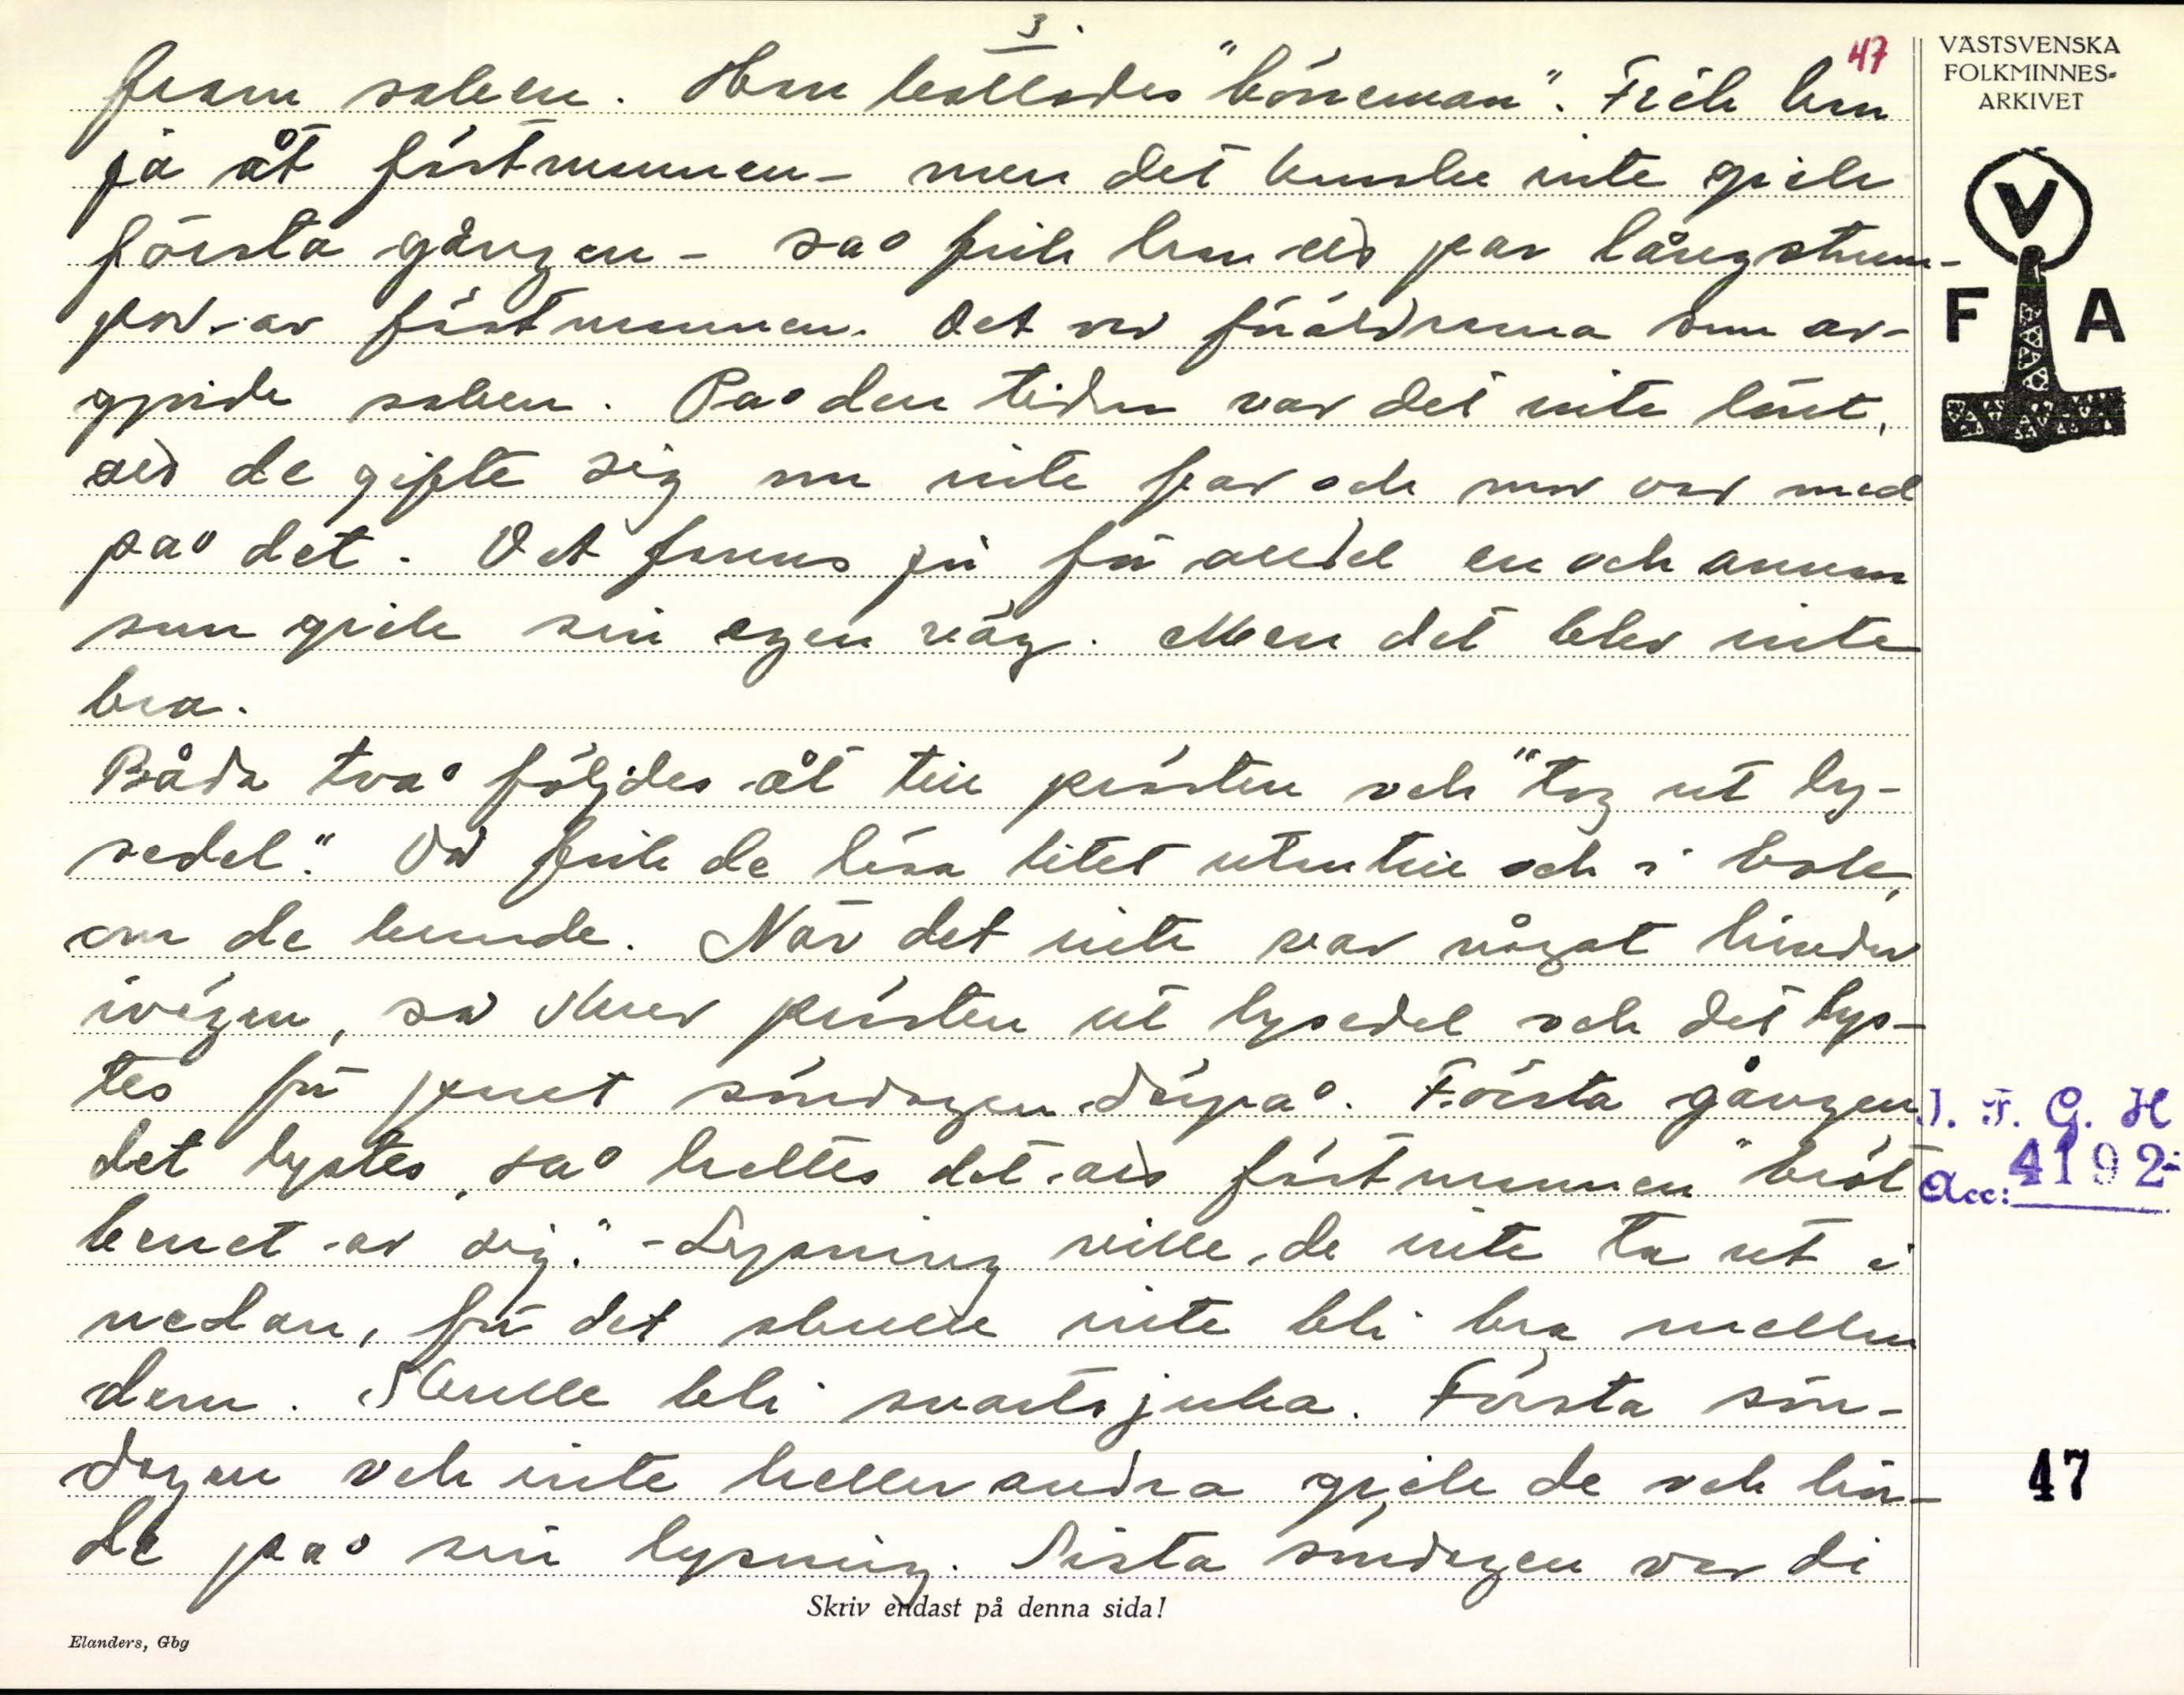 3.
47
fram saken. Han kallades "böneman". Fick han
ja åt fästmannen - men det kanske inte gick
första gången - så fick han ett par långstrum-
por av fästmannen. Det var föräldrarna som av-
gjorde saken. På den tiden var det inte lönt,
att de gifte sig om inte far och mor var med
på det. Det fanns ju för all del en och annan
som gick sin egen väg. Men det blev inte
bra.
Båda två följdes åt till prästen och "tog ut ly-
sedel." Då fick de läsa litet utantill och i bok,
om de kunde. När det inte var något hinder
ivägen, så skrev prästen ut lysedel och det lys-
tes för paret söndagen därpå. Första gången
det lystes, så hettes det att fästmannen "bröt
benet av sig." - Lysning ville de inte ta ut i
nedan, för det skulle inte bli bra mellan
dem. Skulle bli svartsjuka. Första sön-
dagen och inte heller andra gick de och hör-
de på sin lysning. Sista söndagen var di
VÄSTSVENSKA
FOLKMINNES-
ARKIVET
V
F A
I. F. G. H
Acc: 4192
47
Skriv endast på denna sida!
Elanders, Gbg